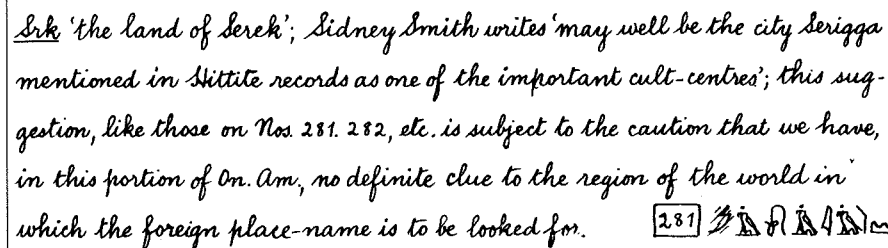 Srk 'the land of Serek'; Sidney Smith writes 'may well be the city Serigga
mentioned in Hittite records as one of the important cult-centres'; this sug-
gestion, like those on Nos. 281. 282, etc. is subject to the caution that we have,
in this portion of On. Am., no definite clue to the region of the world in
which the foreign place-name is to be looked for. 281